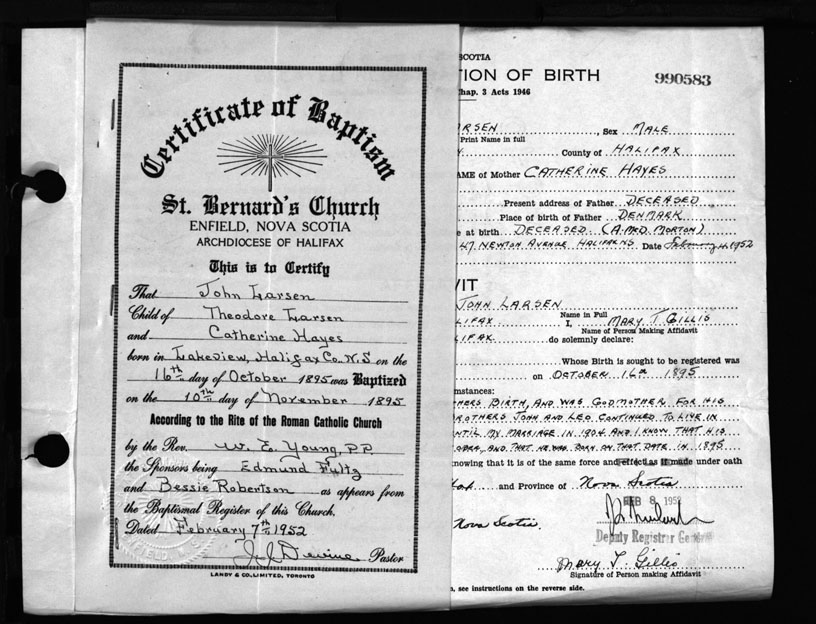 Certificate of Baptism
St. Bernard's Church
ENFIELD, NOVA SCOTIA
ARCHDIOCESE OF HALIFAX
This is to Certify
That John Larsen
Child of Theodore Larsen
and Catherine Hayes
born in Lakeview, Halifax Co. N.S on the
16th day of October 1895 was Baptized
on the 10th day of November 1895
According to the Rite of the Roman Catholic Church
by the Rev. W. E. Young, P.P.
the Sponsors being Edmund Fultz
and Bessie Robertson as appears from
the Baptismal Register of this Church.
Dated February 7th 1952
J. J. Devine Pastor
LANDY & CO. LIMITED, TORONTO
SCOTIA
ION OF BIRTH 990583
hap. 3 Acts 1946
ARSEN, Sex MALE
Print Name in full
County of HALIFAX
AME of Mother CATHERINE HAYES
Present address of Father DECEASED
Place of birth of Father DENMARK
e at birth DECEASED (A. MCD. MORTON)
47 NEWTON AVENUE HALIFAX NS Date February 4, 1952
VIT
JOHN LARSEN
Name in Full
LIFAX I, MARY T. GILLIS
Name of Person Making Affidavit
LIFAX do solemnly declare:
Whose Birth is sought to be registered was
on OCTOBER 16th 1895
mstances:
HERS BIRTH, AND WAS GODMOTHER FOR HIS
ROTHERS JOHN AND LEO CONTINUED TO LIVE IN
NTIL MY MARRIAGE IN 1904 AND I KNOW THAT HIS
OBER, AND THAT HE WAS BORN ON THAT DATE IN 1895
knowing that it is of the same force and effect as if made under oath
and Province of Nova Scotia
FEB 8 1952
Nova Scotia.
Deputy Registrar General
Mary T. Gillis
Signature of Person making Affidavit
, see instructions on the reverse side.